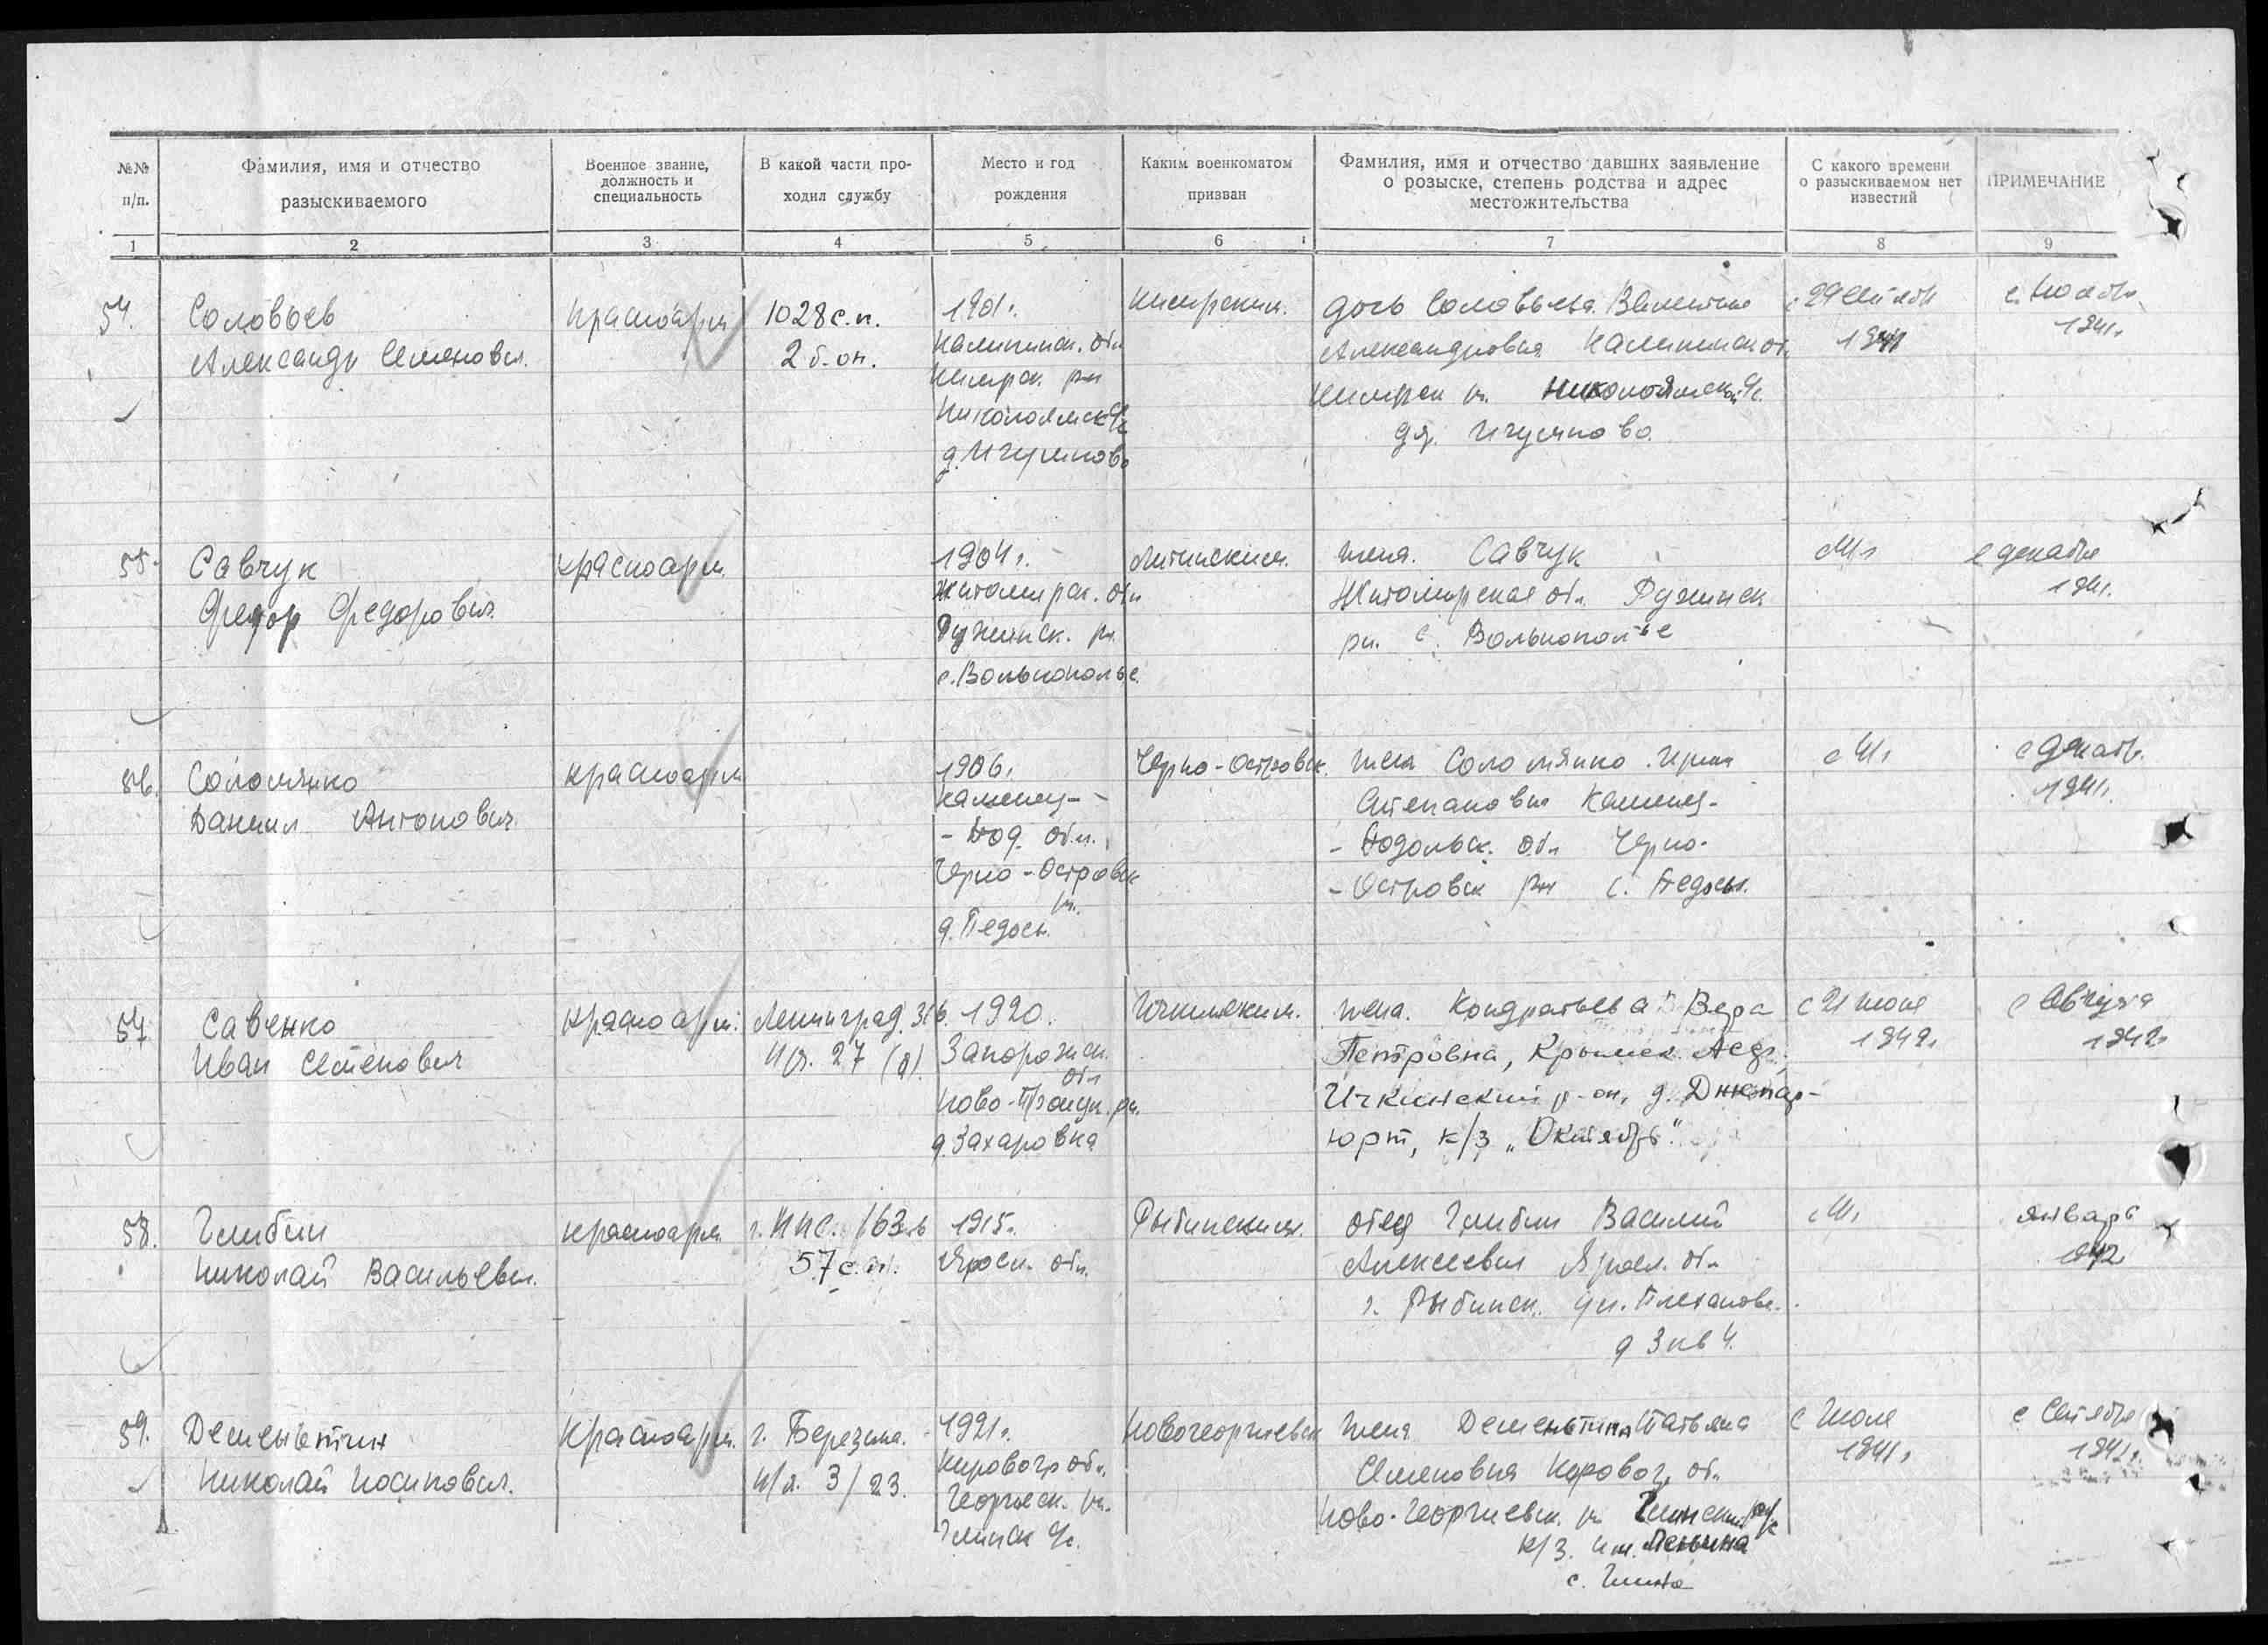 №№ п/п.
Фамилия, имя и отчество
разыскиваемого
Военное звание,
должность и
специальность
В какой части про-
ходил службу
Место и год
рождения
Каким военкоматом
призван
Фамилия, имя и отчество давших заявление
о розыске, степень родства и адрес
местожительства
С какого времени
о разыскиваемом нет
известий
ПРИМЕЧАНИЕ
1 2 3 4 5 6 7 8 9
54.
Соловьев
Александр Семенович.
Красноарм
1028 с.п.
2 б-он.
1901г.
Калининск. обл
Кимрск. рн
Николоямск с/с
д. Игумново
Кимрским.
дочь Соловьева Валентина
Александровна Калининск об.
Кимрск рн. Николоямской с/с.
дер. Игумново.
1941
1941г.
55.
Савчук
Федор Федорович.
Красноарм.
1904г.
Житомирск. обл
Ружинск. рн.
с. Вольнополье.
жена. Савчук
Житомирская обл. Ружинск
рн. с. Вольнополье
с декабря
1941г.
56.
Соломянко
Даниил Антонович.
Красноарм
1906г.
Каменец-
- Под. обл.
Черно-Островск
рн.
д. Педосы.
Черно-Островск.
жена Соломянко
Степановна Каменец-
- Подольск. обл Черно-
- Островск рн с. Педосы.
с декабря.
1941г.
57
Савенко
Иван Семенович
Красноарм.
Ленинград.
п/я. 27 (а).
1920.
Запорожск.
обл
Ново-Троицк. рн.
д. Захаровка
Ичкинским.
жена. Кондратьева Вера
Петровна, Крымск. АССР,
Ичкинский р-он, д.
юрт, к/з „Октябрь".
с Июня
1942г.
с Августа
1942г
58.
Глибин
Николай Васильевич.
Красноарм.
57 с.п.
1915г.
Яросл. обл.
Рыбинским.
отец Глибин Василий
Алексеевич Яросл. обл
г. Рыбинск. ул. Плеханова.
д 3 кв 4.
январь
1942
59.
Дементьтин
Николай Иосипович.
Красноарм.
г. Березина.
п/я. 3/23.
1921г.
Кировогр обл.
Георгиевск. рн.
Глинск с/с.
Новогеоргиевск
жена Татьяна
Семеновна Кировог. об.
Ново-Георгиевск. рн Глинский с/с
к/з. им. Ленина
с. Глинск
с Июля
1941г.
с Сентября
1941г.